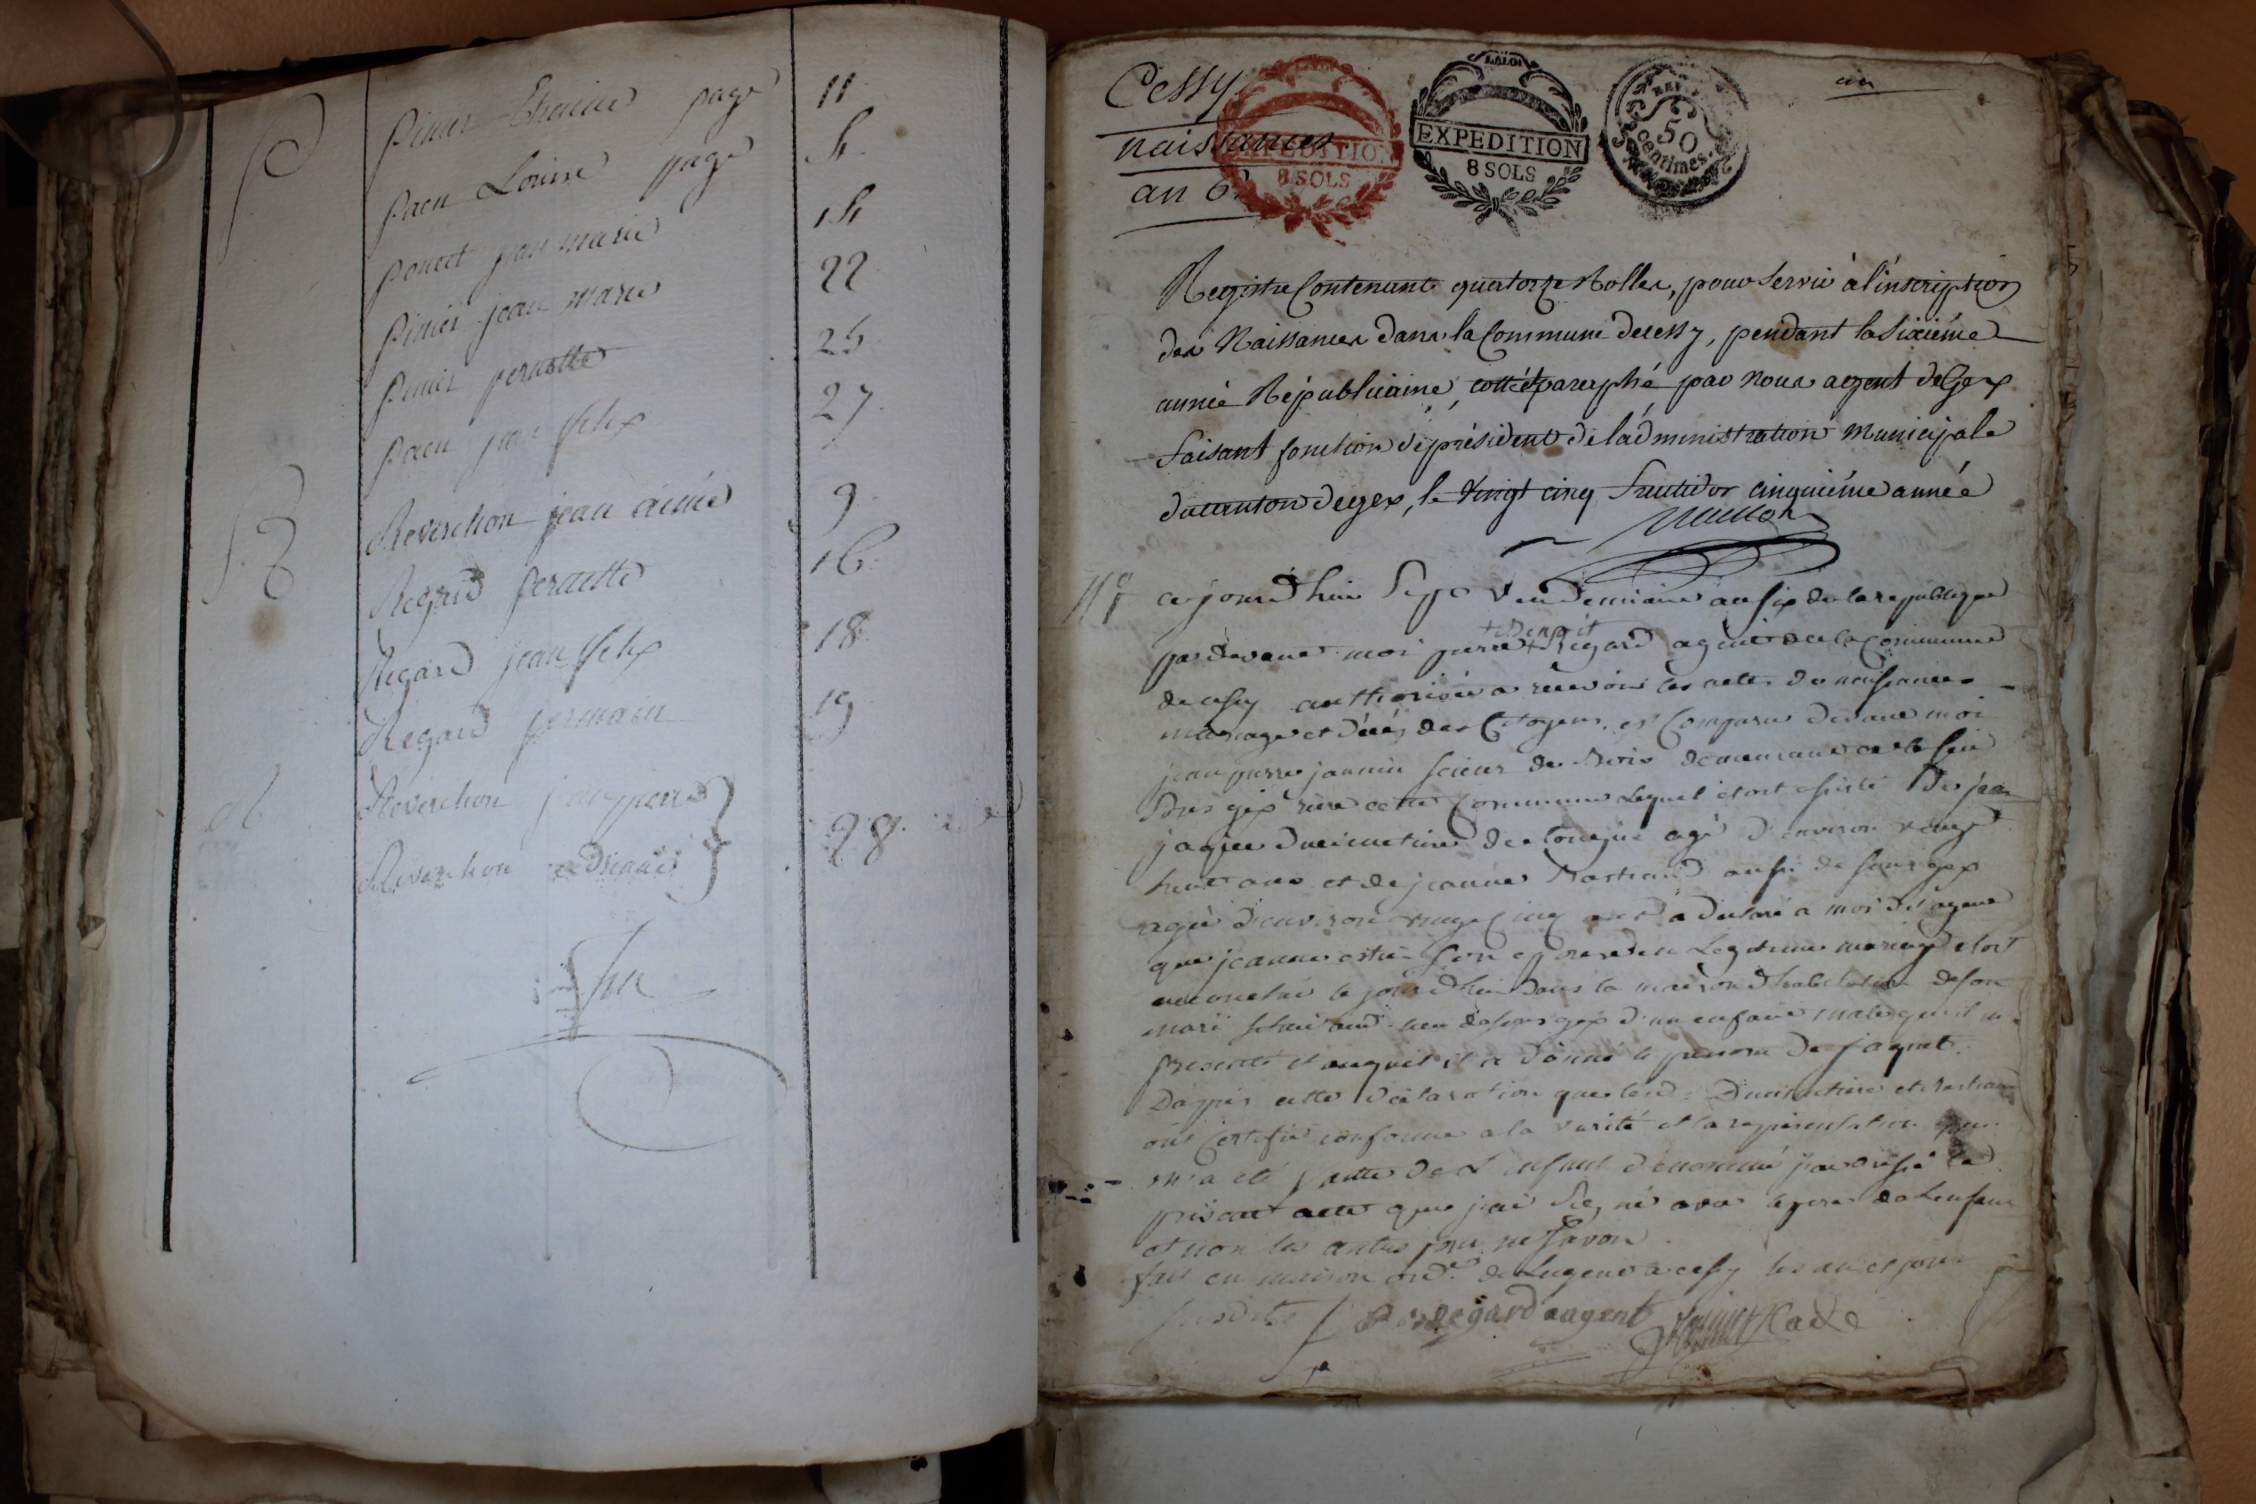 P
Pinier Etienne page 11
Paen Louise page
Ponect jean marie 14
Pinier jean marie 22
Pinier pernette 25
Paen jean felix 27
R
Reverchon jean aimé 9
Regard pernette 16
Regard jean felix 18
Regard germain 19
Reverchon jean pierre
Reverchon 28
fin
Cessy
naissances
an 6
LA LOI
EXPEDITION
8 SOLS
LA LOI
EXPEDITION
8 SOLS
50
Centimes
un
Registre Contenant quatorze Rolles, pour servir à l'inscription
des Naissances dans la Commune de cessy, pendant la sixième
année Républicaine, cotté et paraphé par nous agent de Gex
faisant fonction de président de l'administration Municipale
du canton de gex, le vingt cinq fructidor cinquième année
ce jourd'hui Sept Vendemiaire an six de la republique
par devant moi pierre + Regard agent de la Commune
+ Benoit
de cessy authorisé a recevoir les actes de naissances
mariage et décés des Citoyens, est Comparu devant moi
jean pierre jannin scieur de Bois demeurant
Sous gex rière cette Commune Lequel etant assisté de jean
jaques agé d'environ vingt
huit ans et de jeanne Bastian aussi de sous gex
agée d'environ vingt cinq ans a déclaré a moi dit agent
que jeanne son epouse en Legitime mariage etoit
accouchée ce jourd'hui dans la maison d'habitation de son
mari d'un enfant male qu'il m'a
presenté et auquel il a donné le prenom de jaques
D'apres cette déclaration que les d. et Bastian
ont Certifié conforme a la verité et la representation qui
m'a eté faitte de L'enfant denommé j'ai dressé le
présent acte que j'ai signé avec le pere de L'enfant
et non les autres pour ne savoir
fait en maison ord.re de L'agent a cessy les an et jour
susdits Regard agent